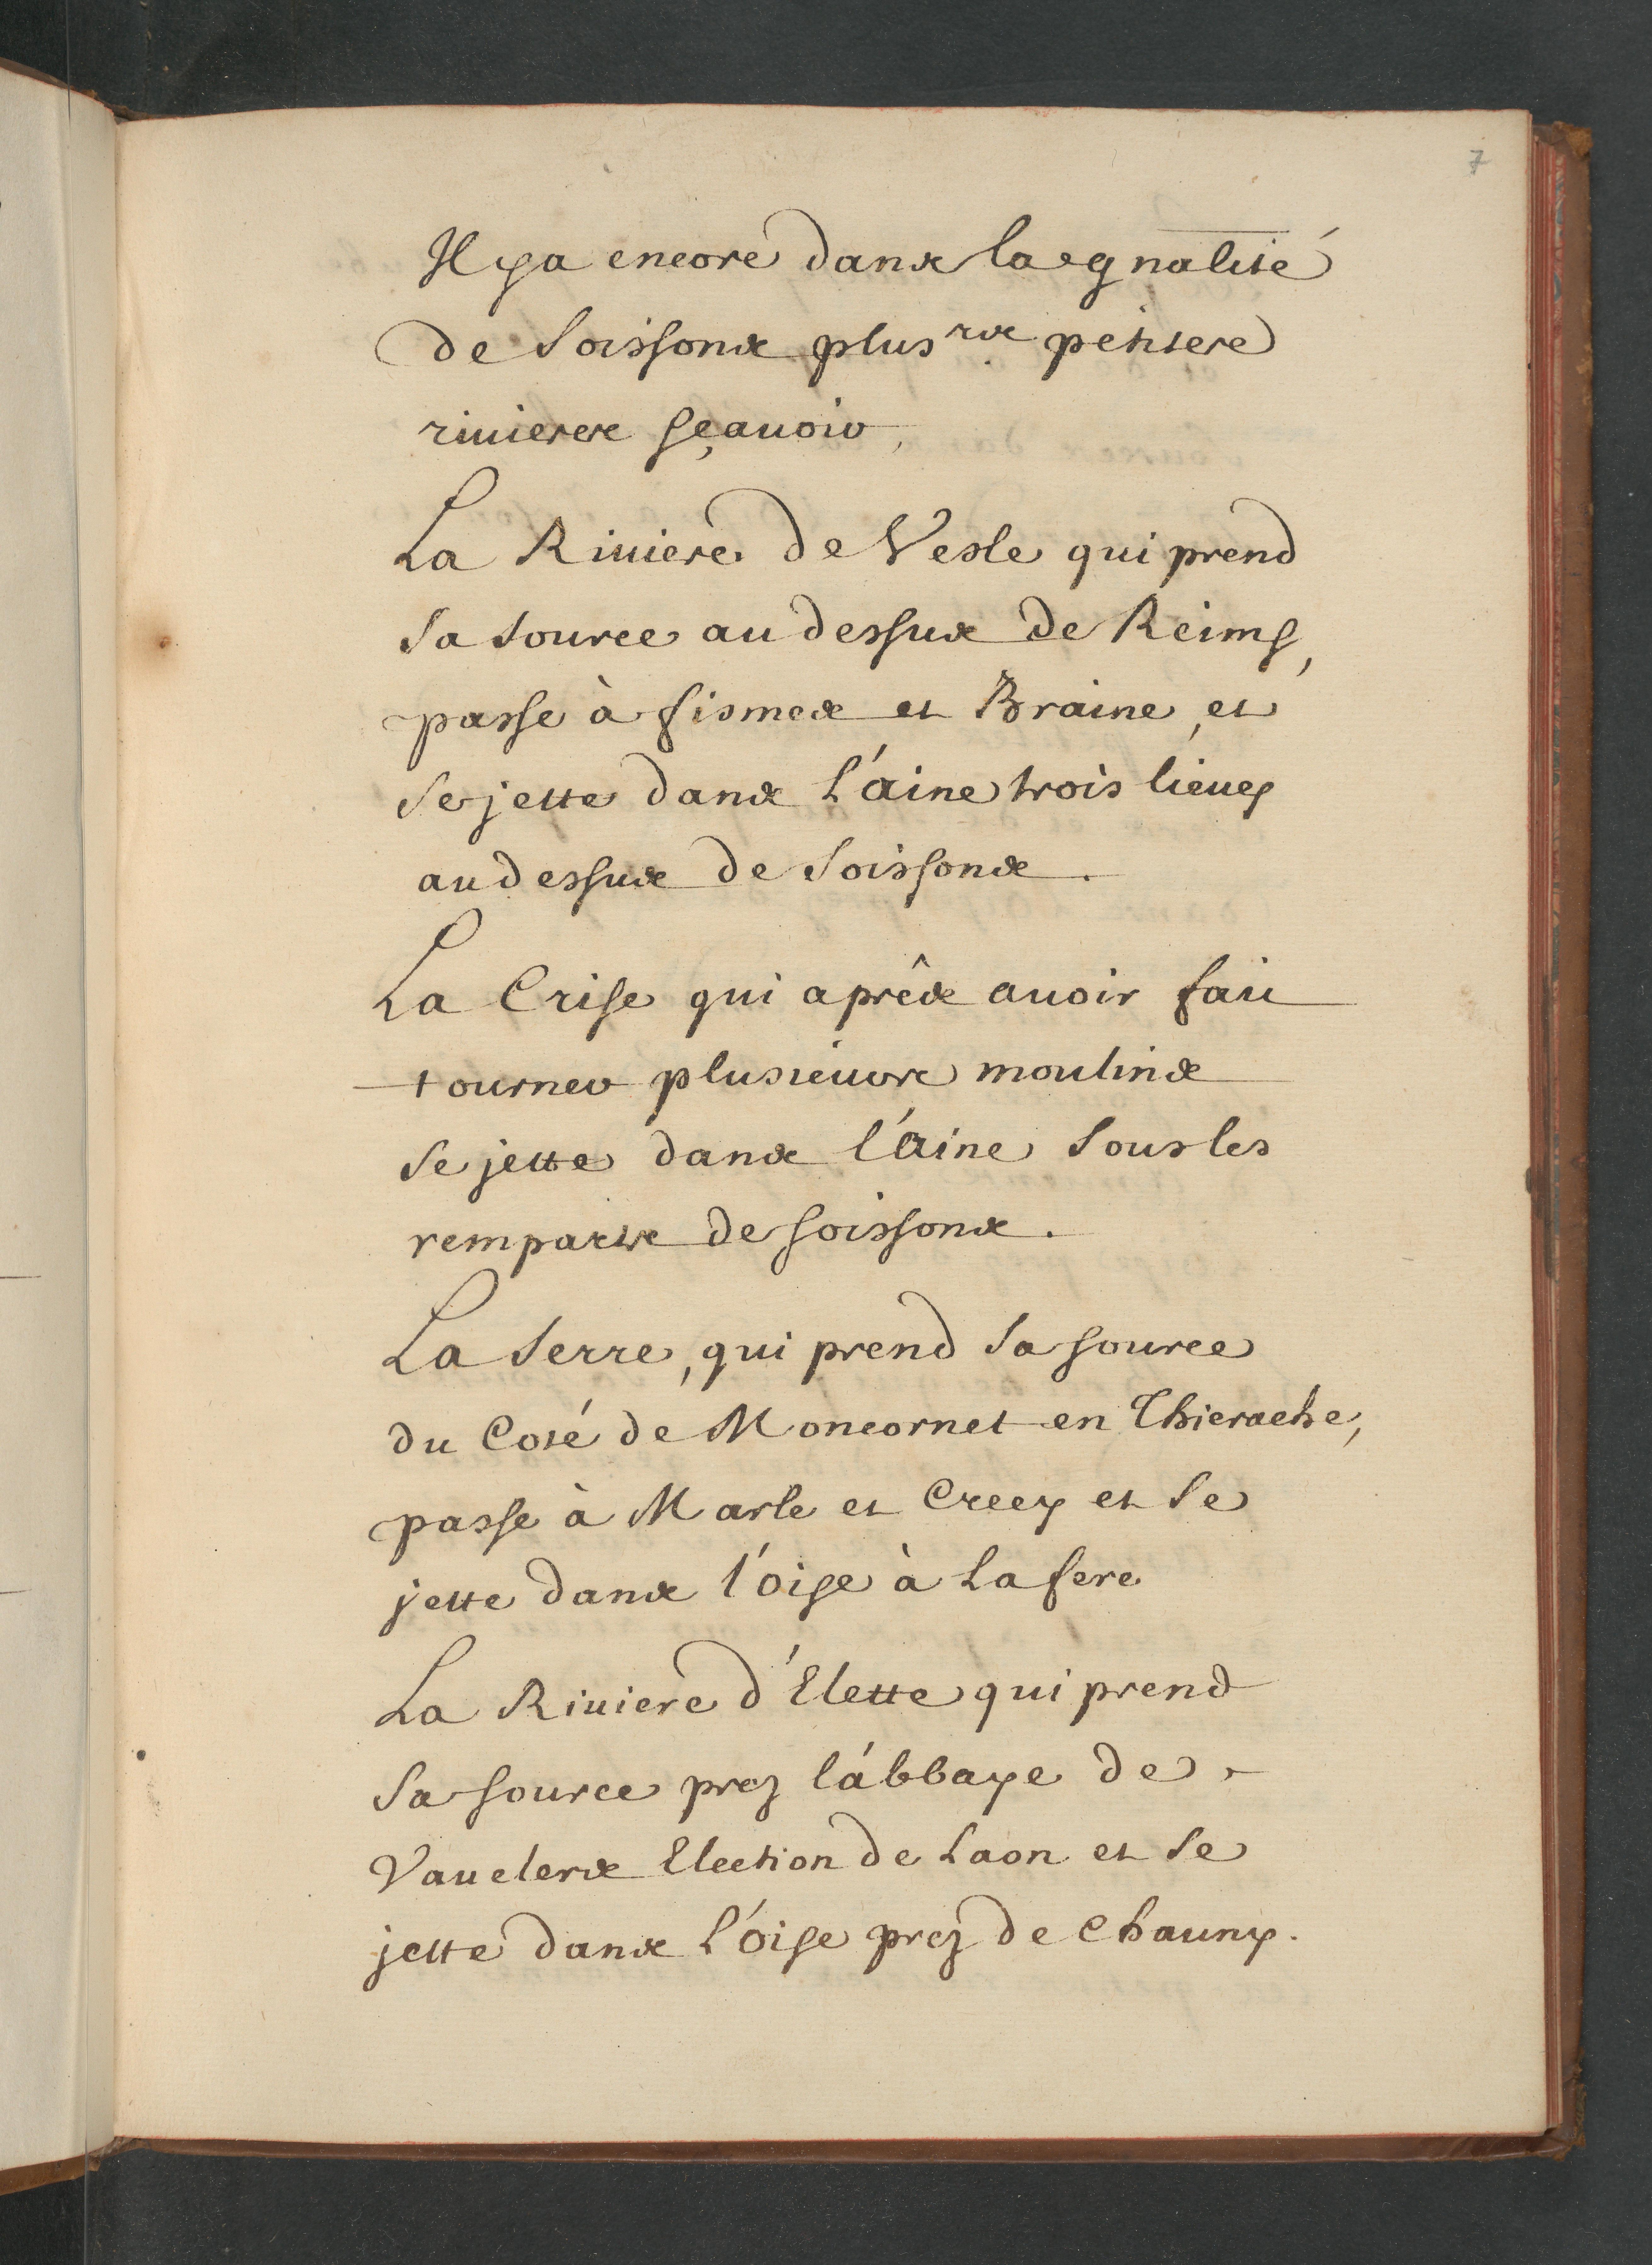 7
Il y a encore dans la gnalité
de Soissons plus.rs petites
rivieres sçauoir,
La Riuiere de Vesle qui prend
sa source au dessus de Reims,
passe à fismes et Braine, et
se jette dans L'aine trois lieues
au dessus de Soissons.
La Crise qui aprês auoir fait
tourner plusieurs moulins
se jette dans l'aine sous les
remparts de soissons.
La Serre, qui prend sa source
du Coté de Moncornet en Thierache,
passe à Marle et Crecy et se
jette dans l'oise à Lafere
La Riuiere d'Elette qui prend
sa source prez l'abbaye de
Vauclers Election de Laon et se
jette dans L'oise prez de Chauny.